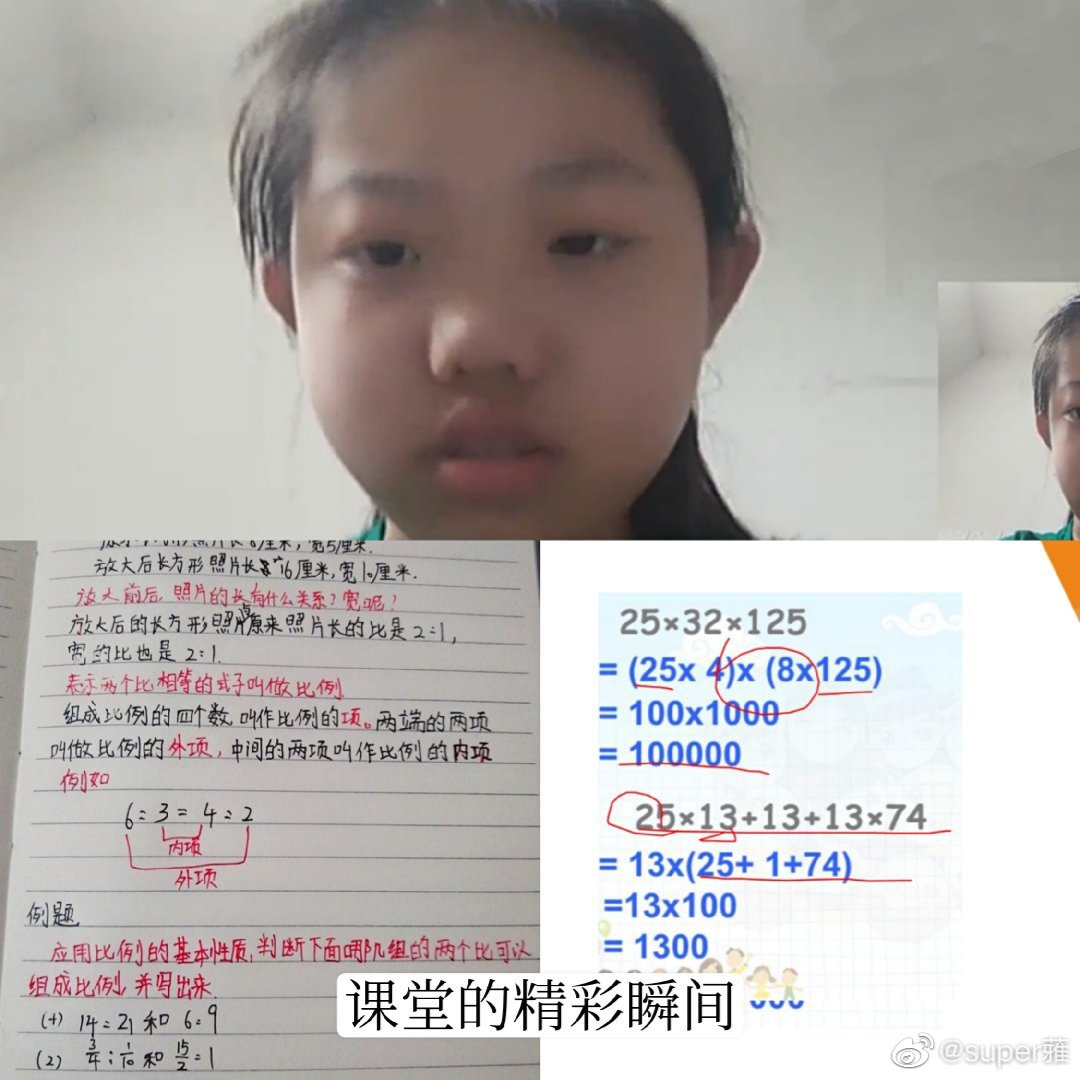 放大后长方形照片长是16厘米,宽10厘米.
放大前后,照片的长有什么关系?宽呢?
放大后的长方形照片与原来照片长的比是2:1,
宽的比也是2:1.
表示两个比相等的式子叫做比例.
组成比例的四个数,叫作比例的项。两端的两项
叫做比例的外项,中间的两项叫作比例的内项
例如
6:3=4:2
内项
外项
例题
应用比例的基本性质,判断下面哪几组的两个比可以
组成比例,并写出来.
14:21 和 6:9
(2) 3/4:1/10 和 15/2:1
25×32×125
= (25x 4)x (8x125)
= 100x1000
= 100000
25×13+13+13×74
= 13x(25+ 1+74)
=13x100
= 1300
课堂的精彩瞬间
@super蕹